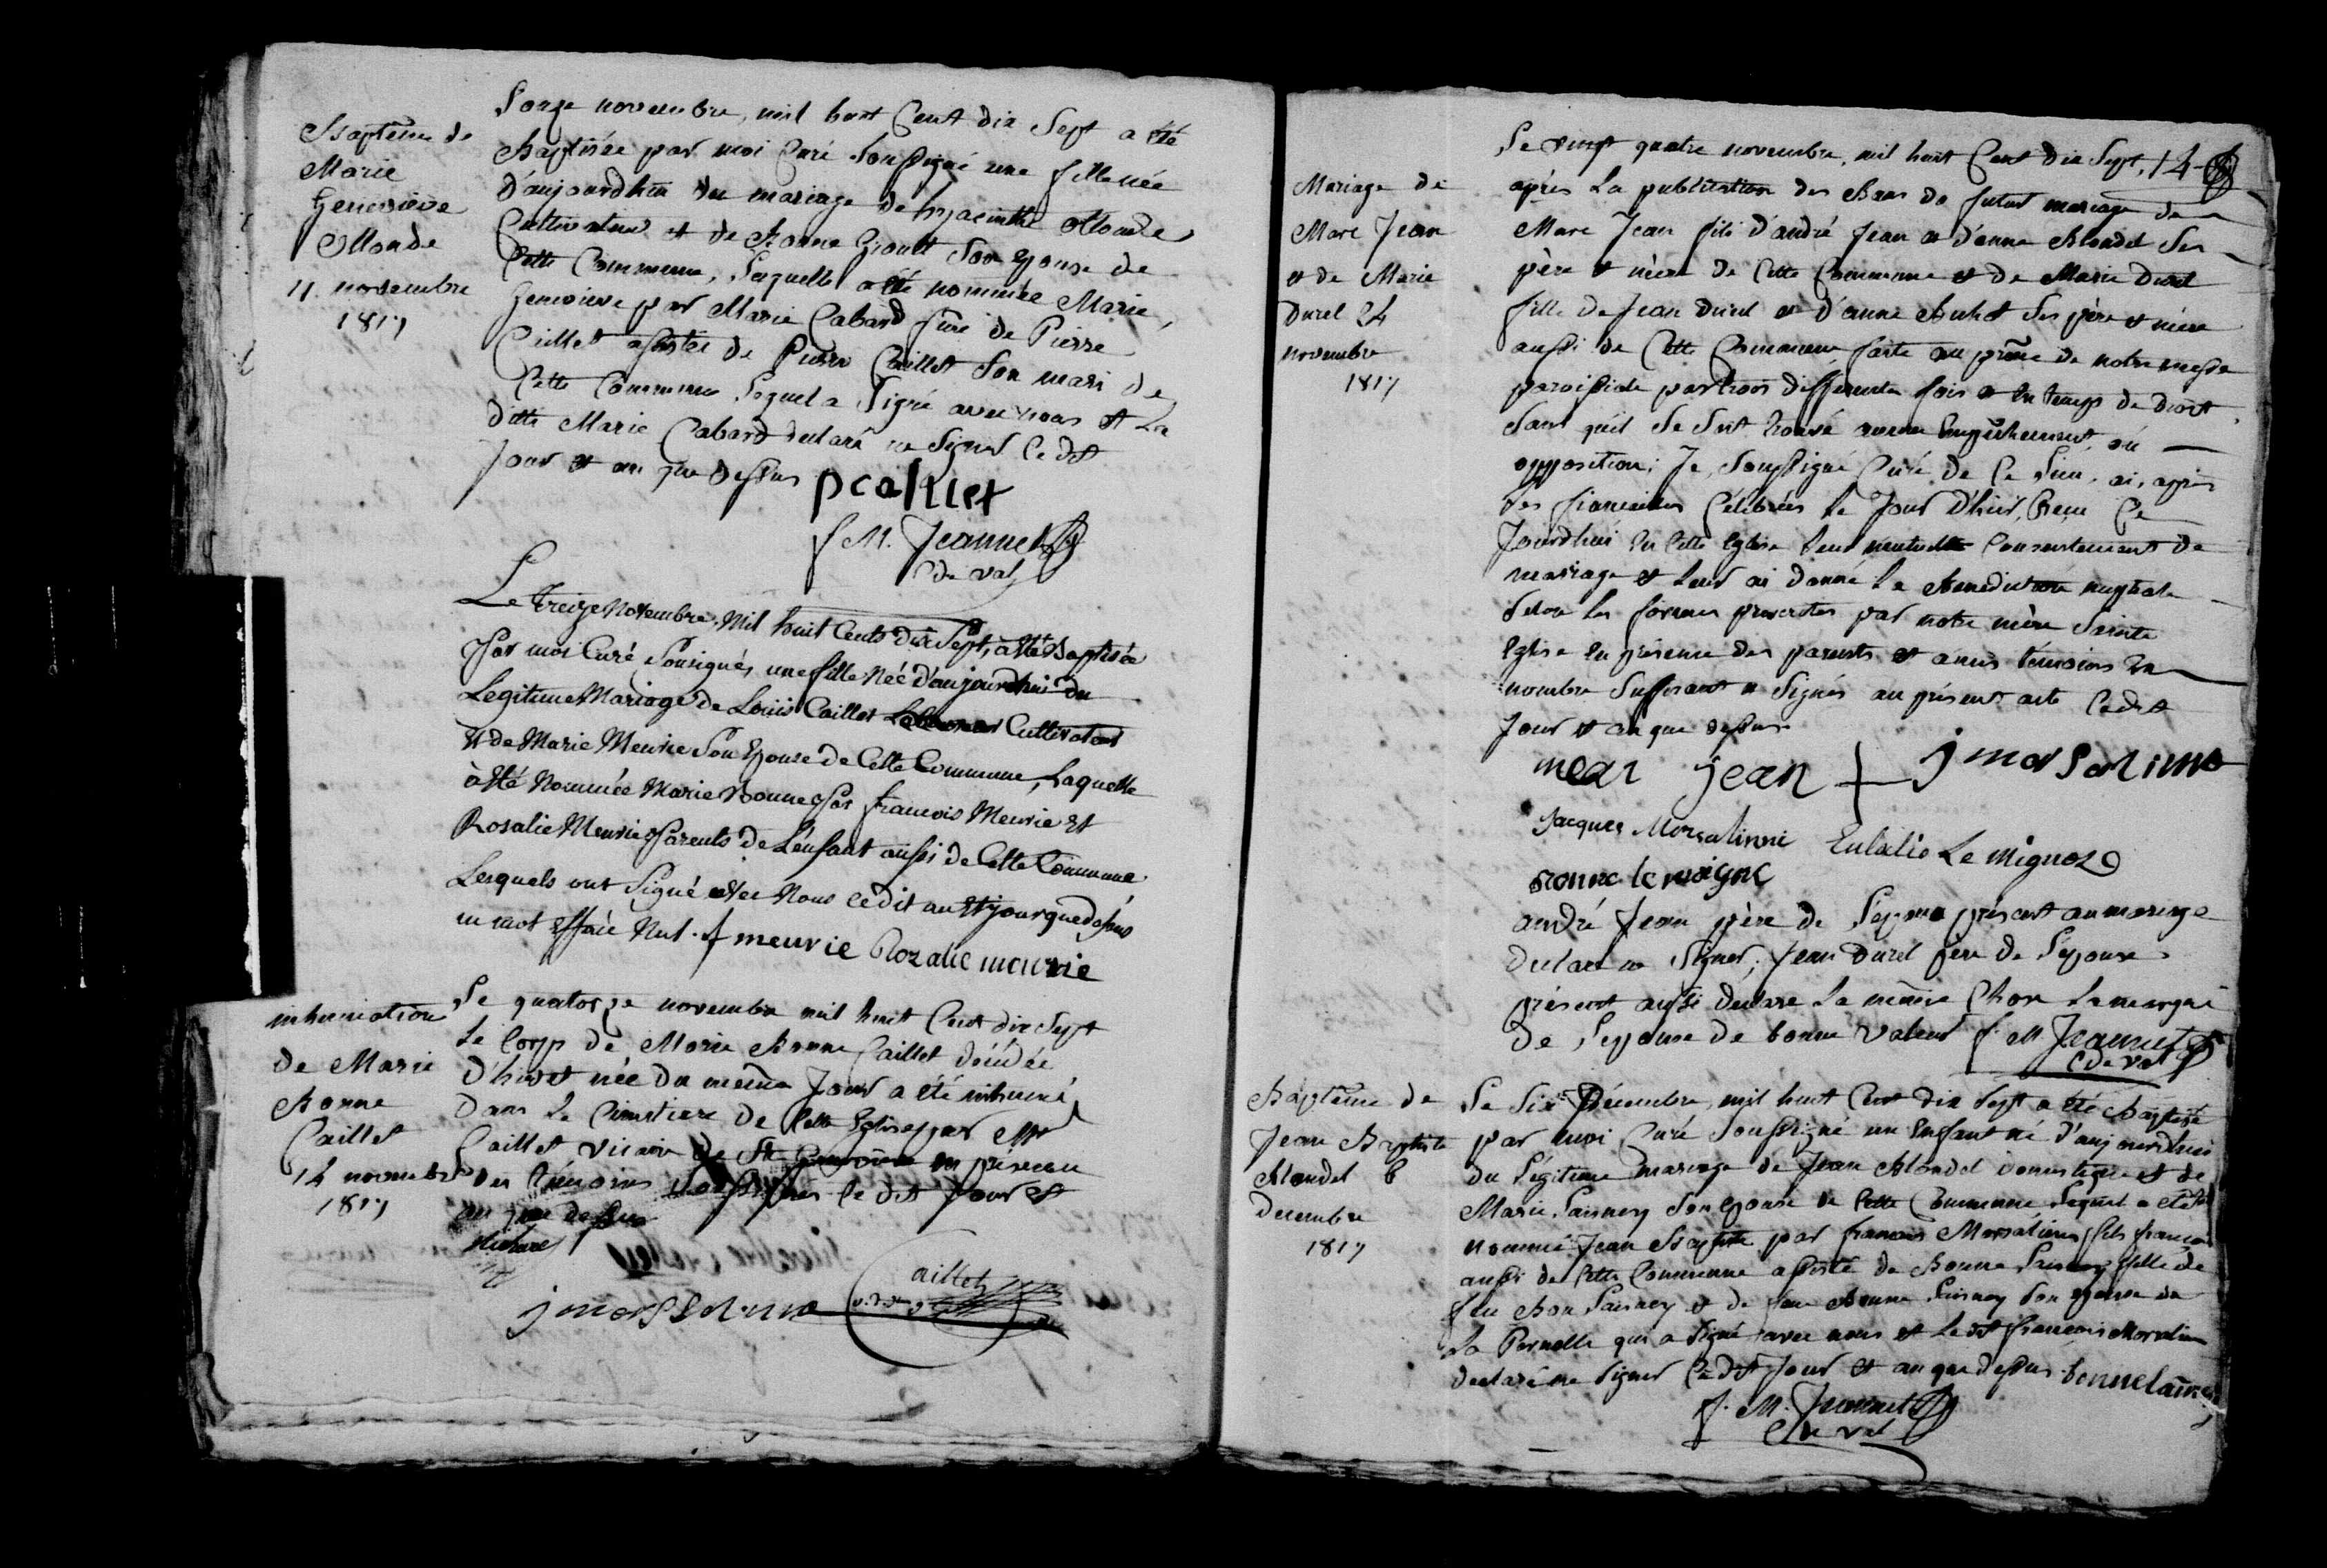 Baptême de
Marie
Geneviève
Monde
11 novembre
1817
L'onze novembre, mil huit Cent dix Sept a été
Baptisée par moi Curé Soussigné une fille née
d'aujourdhui du mariage de hyacinthe Monde
Cultivateur et de Bonne Groult Son Epouse de
Cette Commune, Laquelle a été nommée Marie,
Genevieve par Marie Cabard fme de Pierre
Caillet assistée de Pierre Caillet Son mari de
Cette Commune Lequel a Signé avec nous et La
ditte Marie Cabard declaré ne Signer Ce dit
Jour et an que dessus pcaillet
f M. Jeannet
C de val
Le treize Novembre, Mil huit Cents dix Sept, a été Baptisée
Par moi Curé Sousigné, une fille Née d'aujourdhui du
Legitime Mariage de Louis Caillet Cultivateur
Et de Marie Meurie Son Epouse de Cette Commune, Laquelle
à été Nommée Marie Bonne Par francois Meurie Et
Rosalie Meurie Parents de L'enfant aussi de Cette Commune
Lesquels ont Signé avec Nous ce dit an Et jour que dessus
un mot effacé Nul. f meurie Rozalie meurie
inhumation
de Marie
Bonne
Caillet
14 novembre
1817
Le quatorze novembre mil huit Cent dix Sept
Le Corp de Marie Bonne Caillet décédée
d'hier et née du même Jour a été inhumé
dans Le Cimetiere de Cette Eglise par Mr
Caillet vicaire de Ste Geneviève en présence
des témoins Soussignés Ce dit Jour et
an que dessus
j morsalinne Caillet
Mariage de
Marc Jean
et de Marie
Durel 24
novembre
1817
Le vingt quatre novembre, mil huit Cent dix Sept, 14
après La publication des Bans du futur mariage de
Marc Jean fils d'andré Jean et d'anne Blondel Ses
père et mère de Cette Commune et de Marie Durel
fille de Jean Durel et d'anne Buhot Ses père et mère
aussi de Cette Commune faite au prône de notre messe
paroissiale par trois differentes fois et en temps de droit
Sans qu'il Se Soit trouvé aucun Empêchement ou
opposition; Je Soussigné Curé de Ce Lieu, ai, après
les fiancailles Célébrées Le Jour D'hier, Recu Ce
Jourdhui En Cette Eglise Leur mutuelle Consentement de
mariage et Leur ai donné La Benediction nuptiale
Selon Les formes prescrites par notre mère Sainte
Eglise En présence des parents et amis témoins En
nombre Suffisant et Signés au présent acte Ce dit
Jour et an que dessus
mear jean + j morsalinne
Jacques Morsalinne Eulalie Le mignot
Bonne le moigne
andré Jean père de L'epoux présent au mariage
declare ne Signer, Jean Durel père de L'epouse
présent aussi declare La même Chose La marque
de L'epouse de bonne valeur f. M. Jeannet
C de val
Baptême de
Jean Baptiste
Blondel 6
Decembre
1817
Le Six Décembre, mil huit Cent dix Sept a été Baptisé
par moi Curé Soussigné un Enfant né d'aujourdhui
du Légitime mariage de Jean Blondel domestique et de
Marie Laisney Son Epouse de Cette Commune Lequel a été
nommé Jean Baptiste par francois Morsalinne fils francois
aussi de Cette Commune assisté de Bonne Laisney fille de
feu Bon Laisney et de feue Bonne Laisney Son epouse de
La Pernelle qui a Signé avec nous et Le dit francois Morsalinne
declaré ne Signer Ce dit Jour et an que dessus. bonne laisney
f. M. Jeannet
C de val